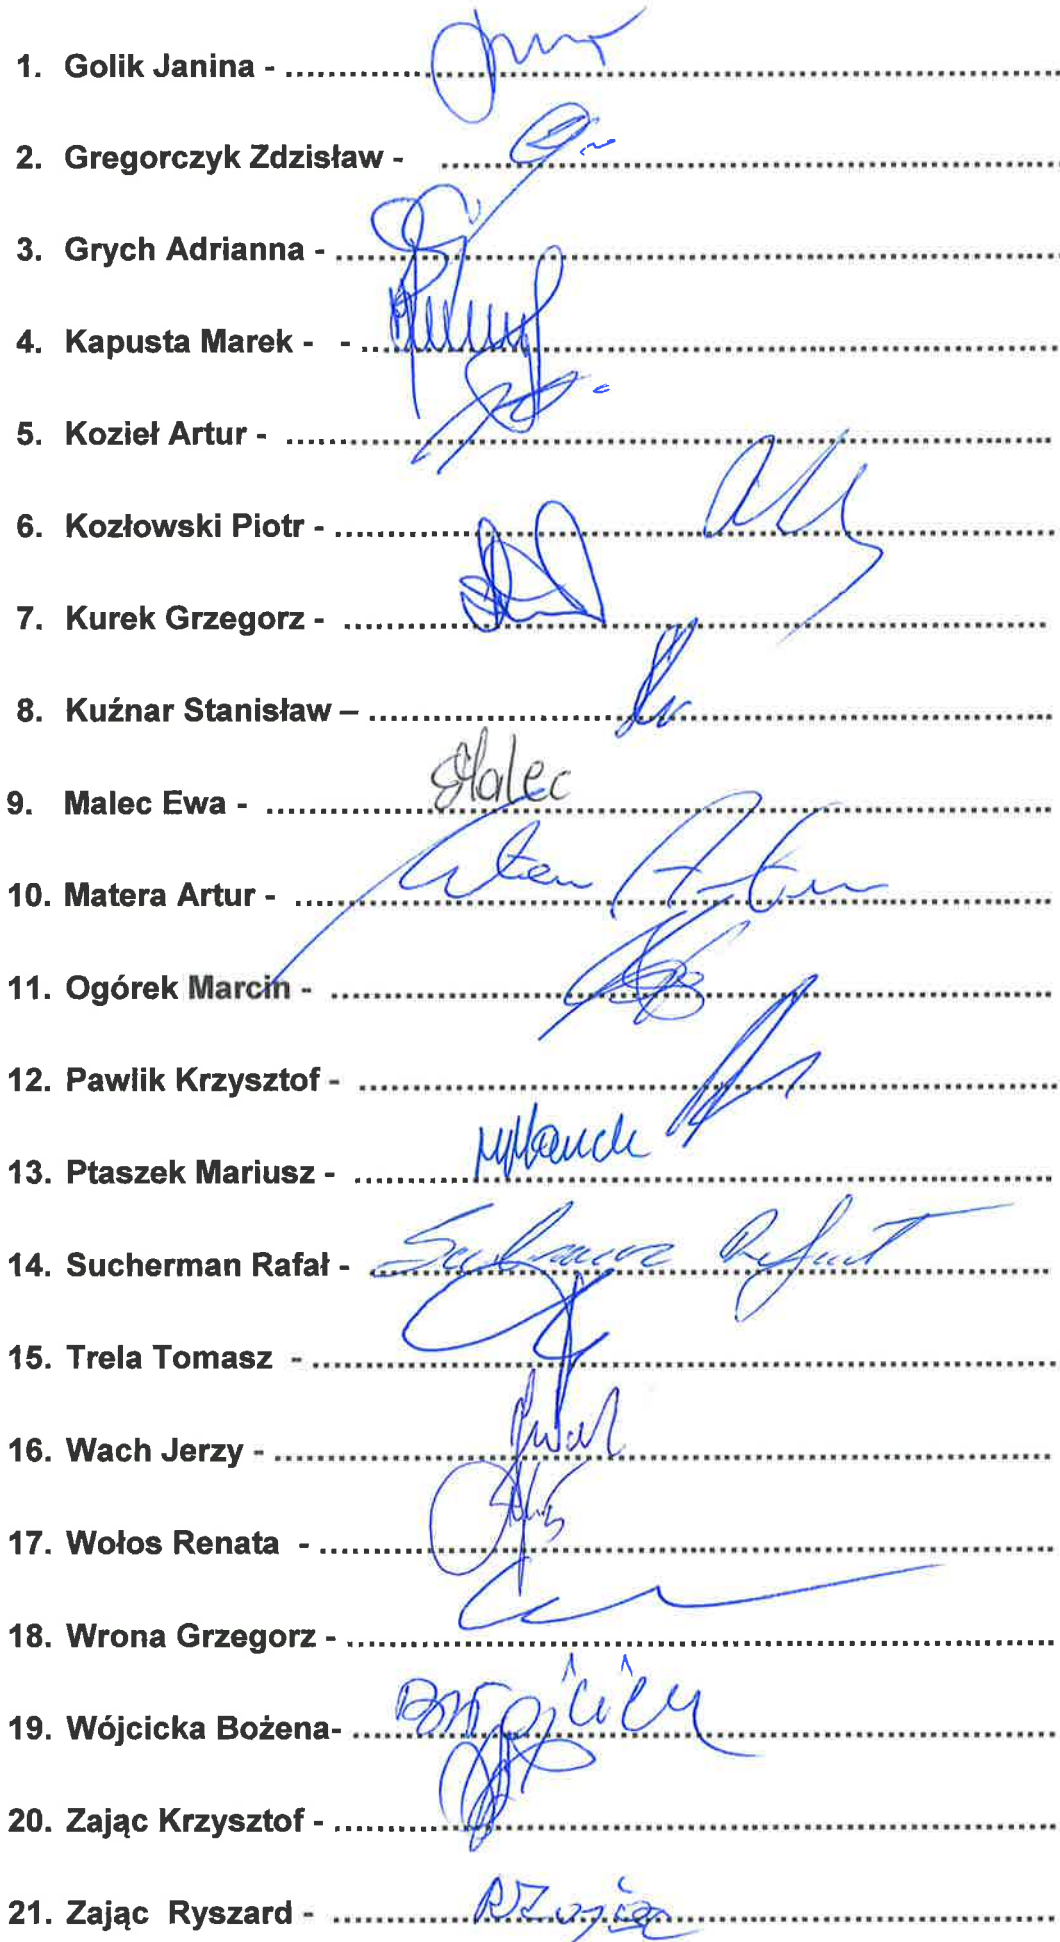 1. Golik Janina - ........................................
2. Gregorczyk Zdzisław - ........................................
3. Grych Adrianna - ........................................
4. Kapusta Marek - - ........................................
5. Kozieł Artur - ........................................
6. Kozłowski Piotr - ........................................
7. Kurek Grzegorz - ........................................
8. Kuźnar Stanisław – ........................................
9. Malec Ewa - ........................................ EMalec
10. Matera Artur - ........................................
11. Ogórek Marcin - ........................................
12. Pawlik Krzysztof - ........................................
13. Ptaszek Mariusz - ........................................
14. Sucherman Rafał - ........................................ Sucherman Rafał
15. Trela Tomasz - ........................................
16. Wach Jerzy - ........................................
17. Wołos Renata - ........................................
18. Wrona Grzegorz - ........................................
19. Wójcicka Bożena- ........................................
20. Zając Krzysztof - ........................................
21. Zając Ryszard - ........................................ RZając